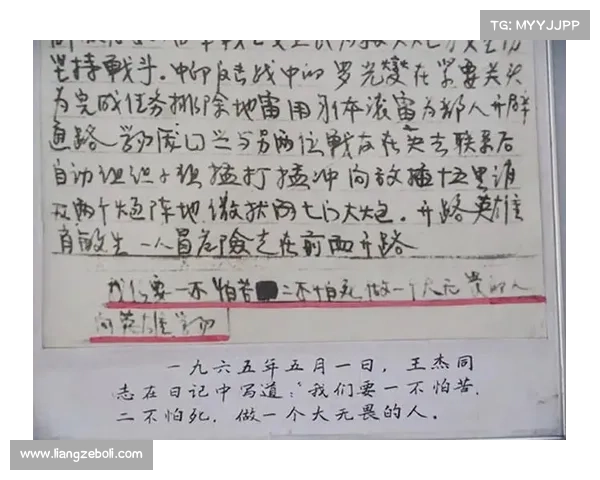 TG: MYYJJPP
坚持戰斗。中印反击战中的罗光燮在紧要关头
为完成任务排除地雷用身体滚雷为部人开辟
通路 学习庞国兴与另两位戰友在失去联系后
自动组织小组猛打猛冲向敌
两个炮阵地 缴获 七门大炮. 开路英雄
一人冒危險走在前面开路
我们要一不怕苦 二不怕死 做一个大无畏的人
向英雄学习
一九六五年五月一日，王杰同
志在日记中写道：“我们要一不怕苦.
二不怕死. 做一个大无畏的人.
www.liangzeboli.com